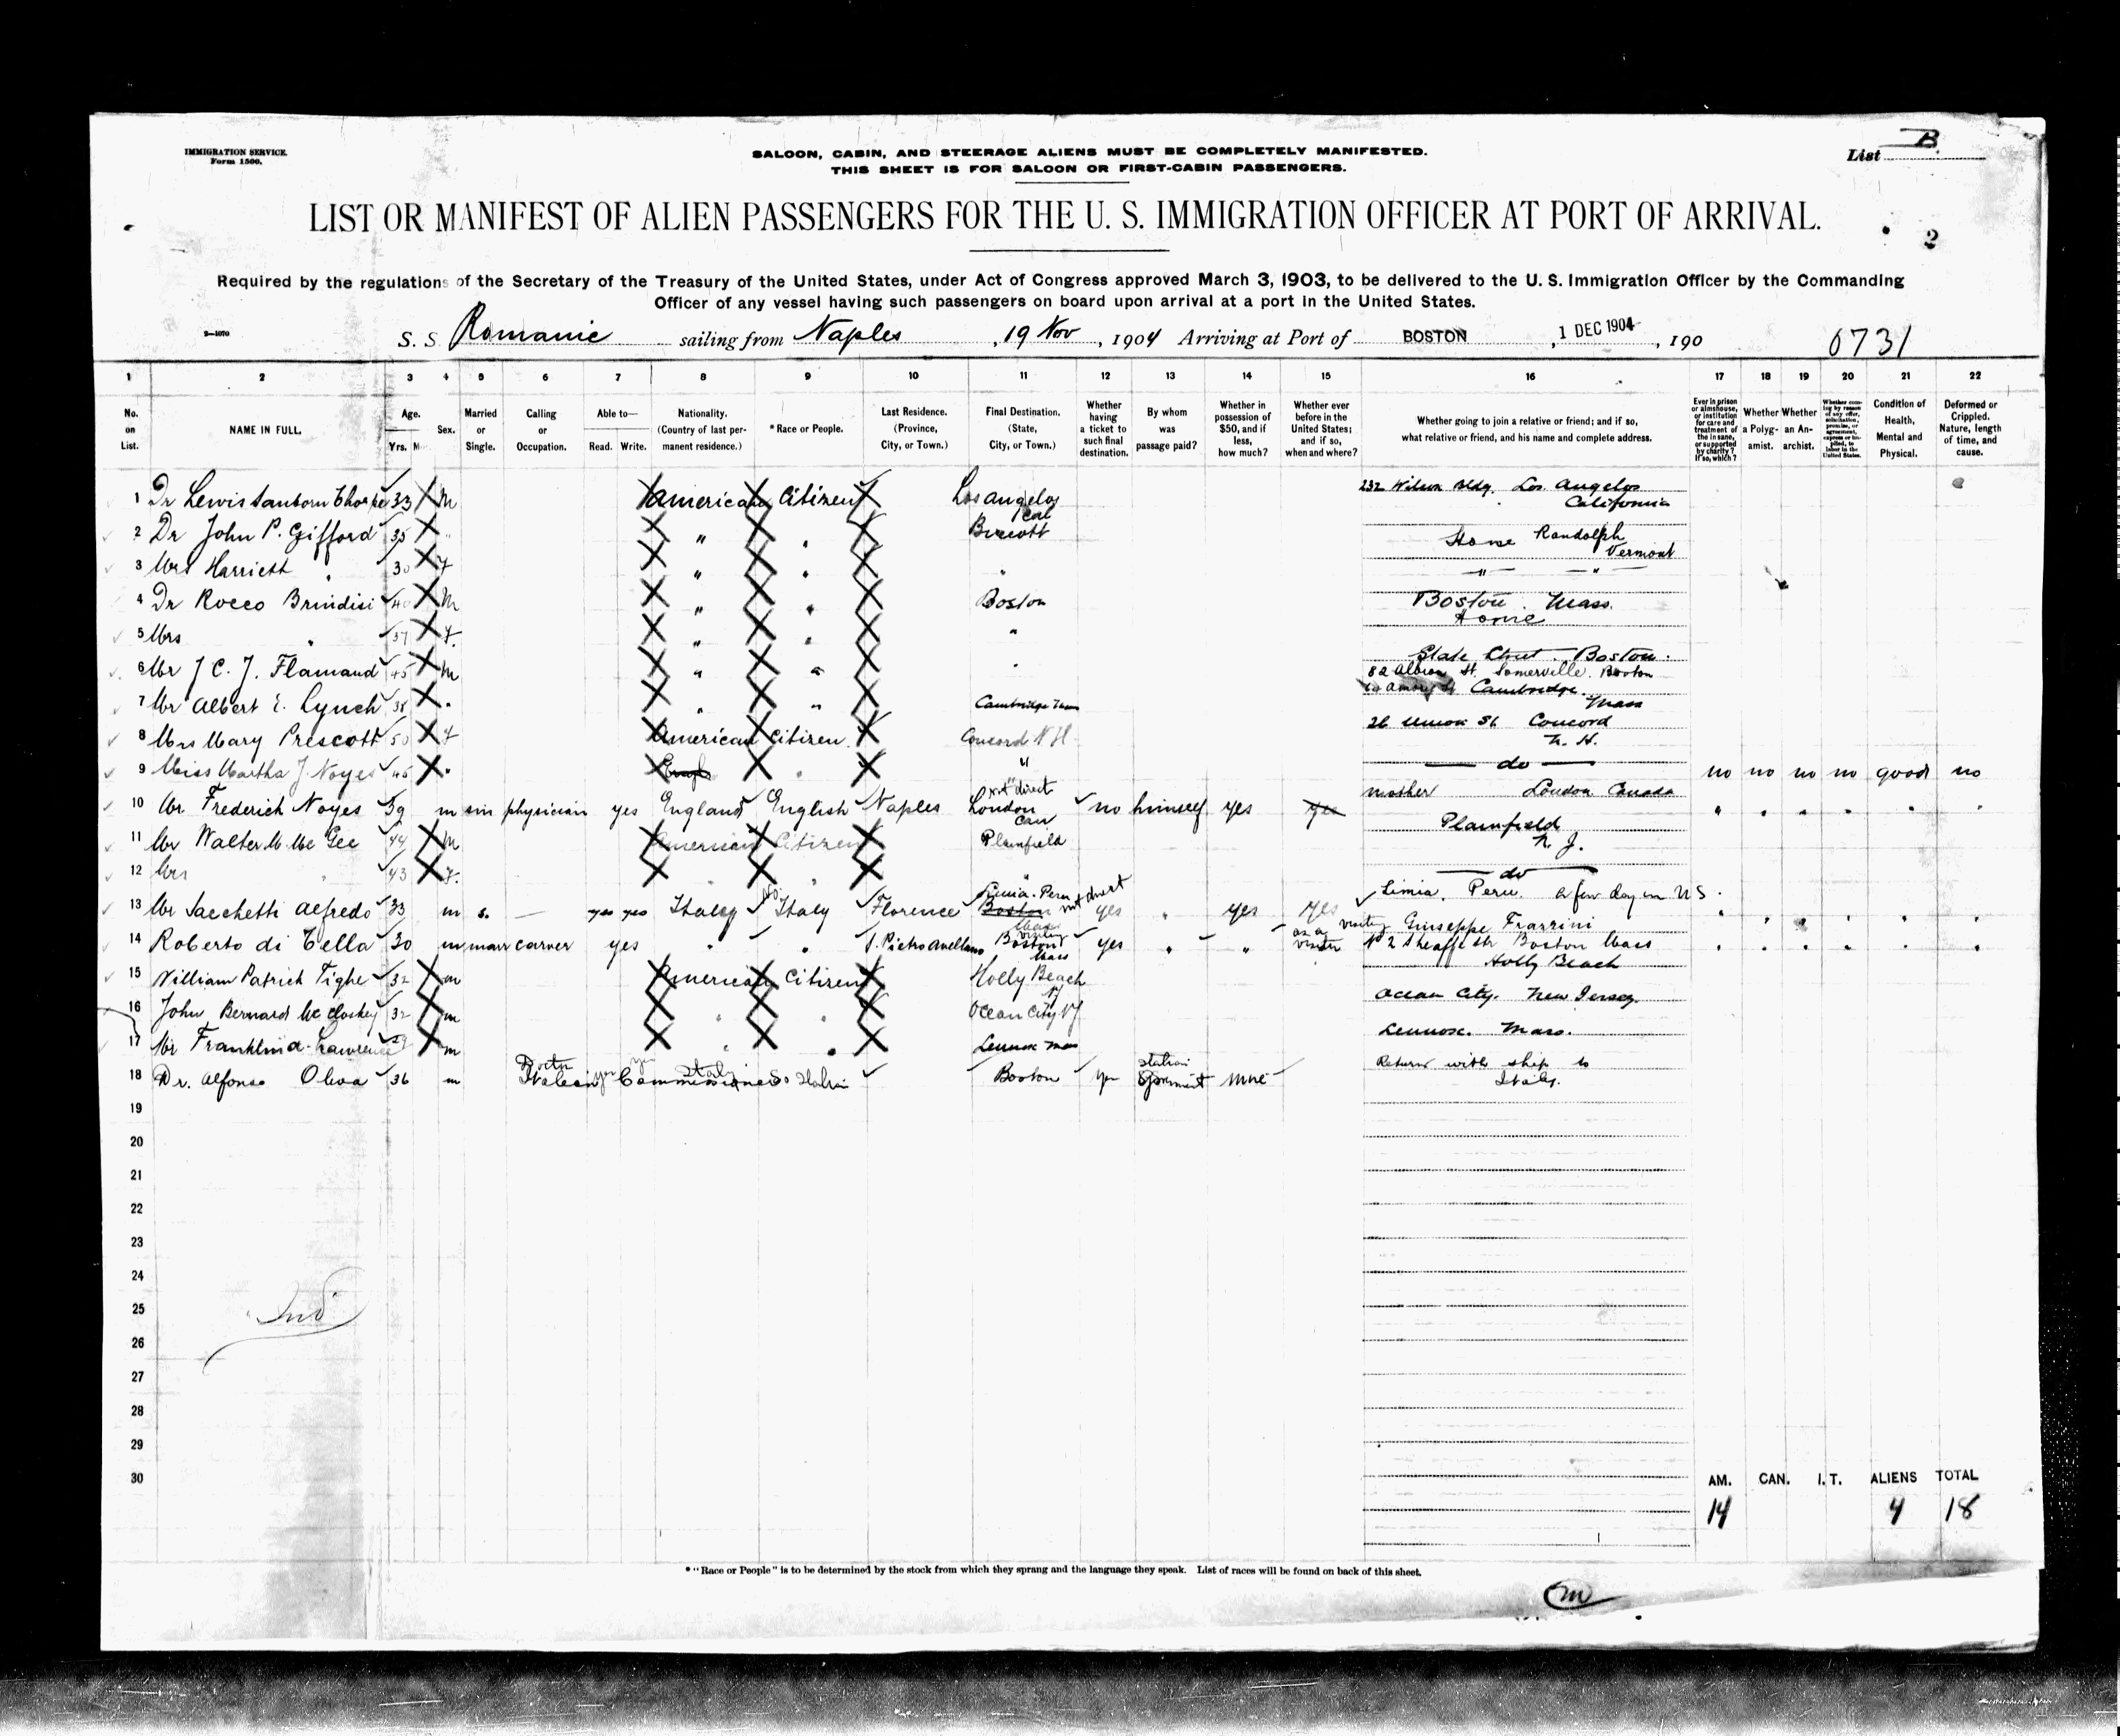 IMMIGRATION SERVICE.
Form 1500.
SALOON, CABIN, AND STEERAGE ALIENS MUST BE COMPLETELY MANIFESTED.
THIS SHEET IS FOR SALOON OR FIRST-CABIN PASSENGERS.
List B.
LIST OR MANIFEST OF ALIEN PASSENGERS FOR THE U. S. IMMIGRATION OFFICER AT PORT OF ARRIVAL.
2
Required by the regulations of the Secretary of the Treasury of the United States, under Act of Congress approved March 3, 1903, to be delivered to the U. S. Immigration Officer by the Commanding
Officer of any vessel having such passengers on board upon arrival at a port in the United States.
2—1070
S. S. Romanic sailing from Naples, 19 Nov, 1904 Arriving at Port of BOSTON, 1 DEC 1904, 190
0731
1 2 3 4 5 6 7 8 9 10 11 12 13 14 15 16 17 18 19 20 21 22
No. on List.
NAME IN FULL.
Age. Yrs. M
Sex.
Married or Single.
Calling or Occupation.
Able to— Read. Write.
Nationality. (Country of last permanent residence.)
*Race or People.
Last Residence. (Province, City, or Town.)
Final Destination. (State, City, or Town.)
Whether having a ticket to such final destination.
By whom was passage paid?
Whether in possession of $50, and if less, how much?
Whether ever before in the United States; and if so, when and where?
Whether going to join a relative or friend; and if so, what relative or friend, and his name and complete address.
Ever in prison or almshouse, or institution for care and treatment of the insane, or supported by charity? If so, which?
Whether a Polygamist.
Whether an Anarchist.
Condition of Health, Mental and Physical.
Deformed or Crippled. Nature, length of time, and cause.
1 Dr Lewis Sanborn Thorpe 33 M American Citizen Los Angelos Cal 232 Wilson Bldg. Los Angelos California
2 Dr John P. Gifford 35 " " " Home Randolph Vermont
3 Mrs Harriett " 30 f " " " " "
4 Dr Rocco Brindisi 40 M " " Boston Boston. Mass. Home
5 Mrs " 37 f. " " "
6 Mr J C. J. Flamand 45 M " " " State Street. Boston.
82 Albion St. Somerville. Boston
7 Mr Albert E. Lynch 38 " " " Cambridge Mass Cambridge. Mass
8 Mrs Mary Prescott 50 f American Citizen. Concord N H 26 Union St Concord N. H.
9 Miss Martha J. Noyes 45 " " " do no no no no good no
10 Mr Frederich Noyes 39 m sin physician yes England English Naples not direct London Can no himself yes yes mother London Canada " " " " " "
11 Mr Walter M. Mc Gee 44 M American Citizen Plainfield Plainfield N. J.
12 Mrs " 43 f. " " " do
13 Mr Sacchetti Alfredo 33 m s. — yes yes Italy No Italy Florence Limia. Peru Boston not direct yes " yes yes Limia. Peru. a few day in US. " " " " " "
14 Roberto di Tella 30 m marr carver yes " " S. Pietro Avellano Boston Mass yes " " as a visitor visiting Giuseppe Frazzini
No 2 Sheaffe str Boston Mass " " " " " "
15 William Patrick Tighe 32 m American Citizen Holly Beach NJ Holly Beach
16 John Bernard Mc Closkey 32 m " " Ocean City NJ Ocean City. New Jersey.
17 Mr Franklin a. Lawrence 29 m " " Lennox Mass Lennox. Mass.
18 Dr. Alfonso Oliva 36 m Doctor Italian yes yes Commissioner Italy So Italian Boston yes Italian Government none Return with ship to Italy.
19
20
21
22
23
24
25
26
27
28
29
30
AM. CAN. I. T. ALIENS TOTAL
14 4 18
* "Race or People" is to be determined by the stock from which they sprang and the language they speak. List of races will be found on back of this sheet.